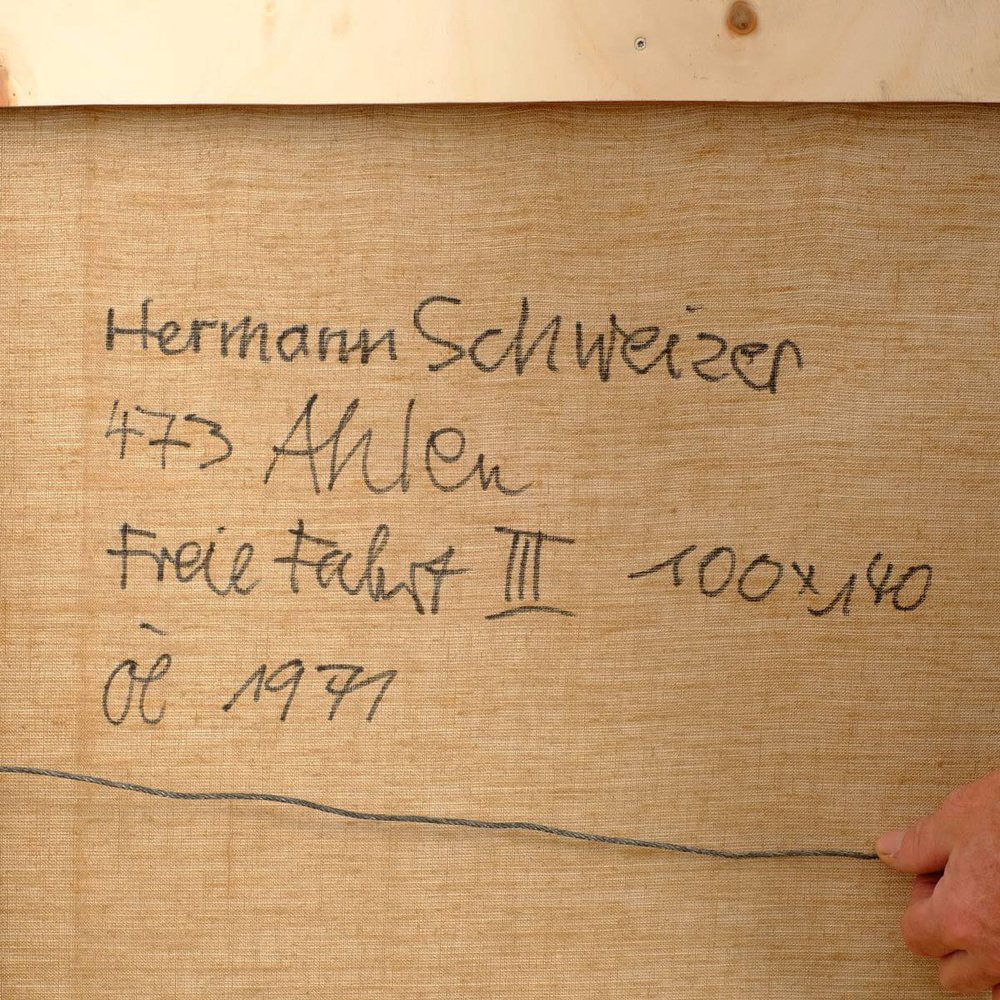 Hermann Schweizer
473 Ahlen
Freie Fahrt III 100x140
Öl 1971